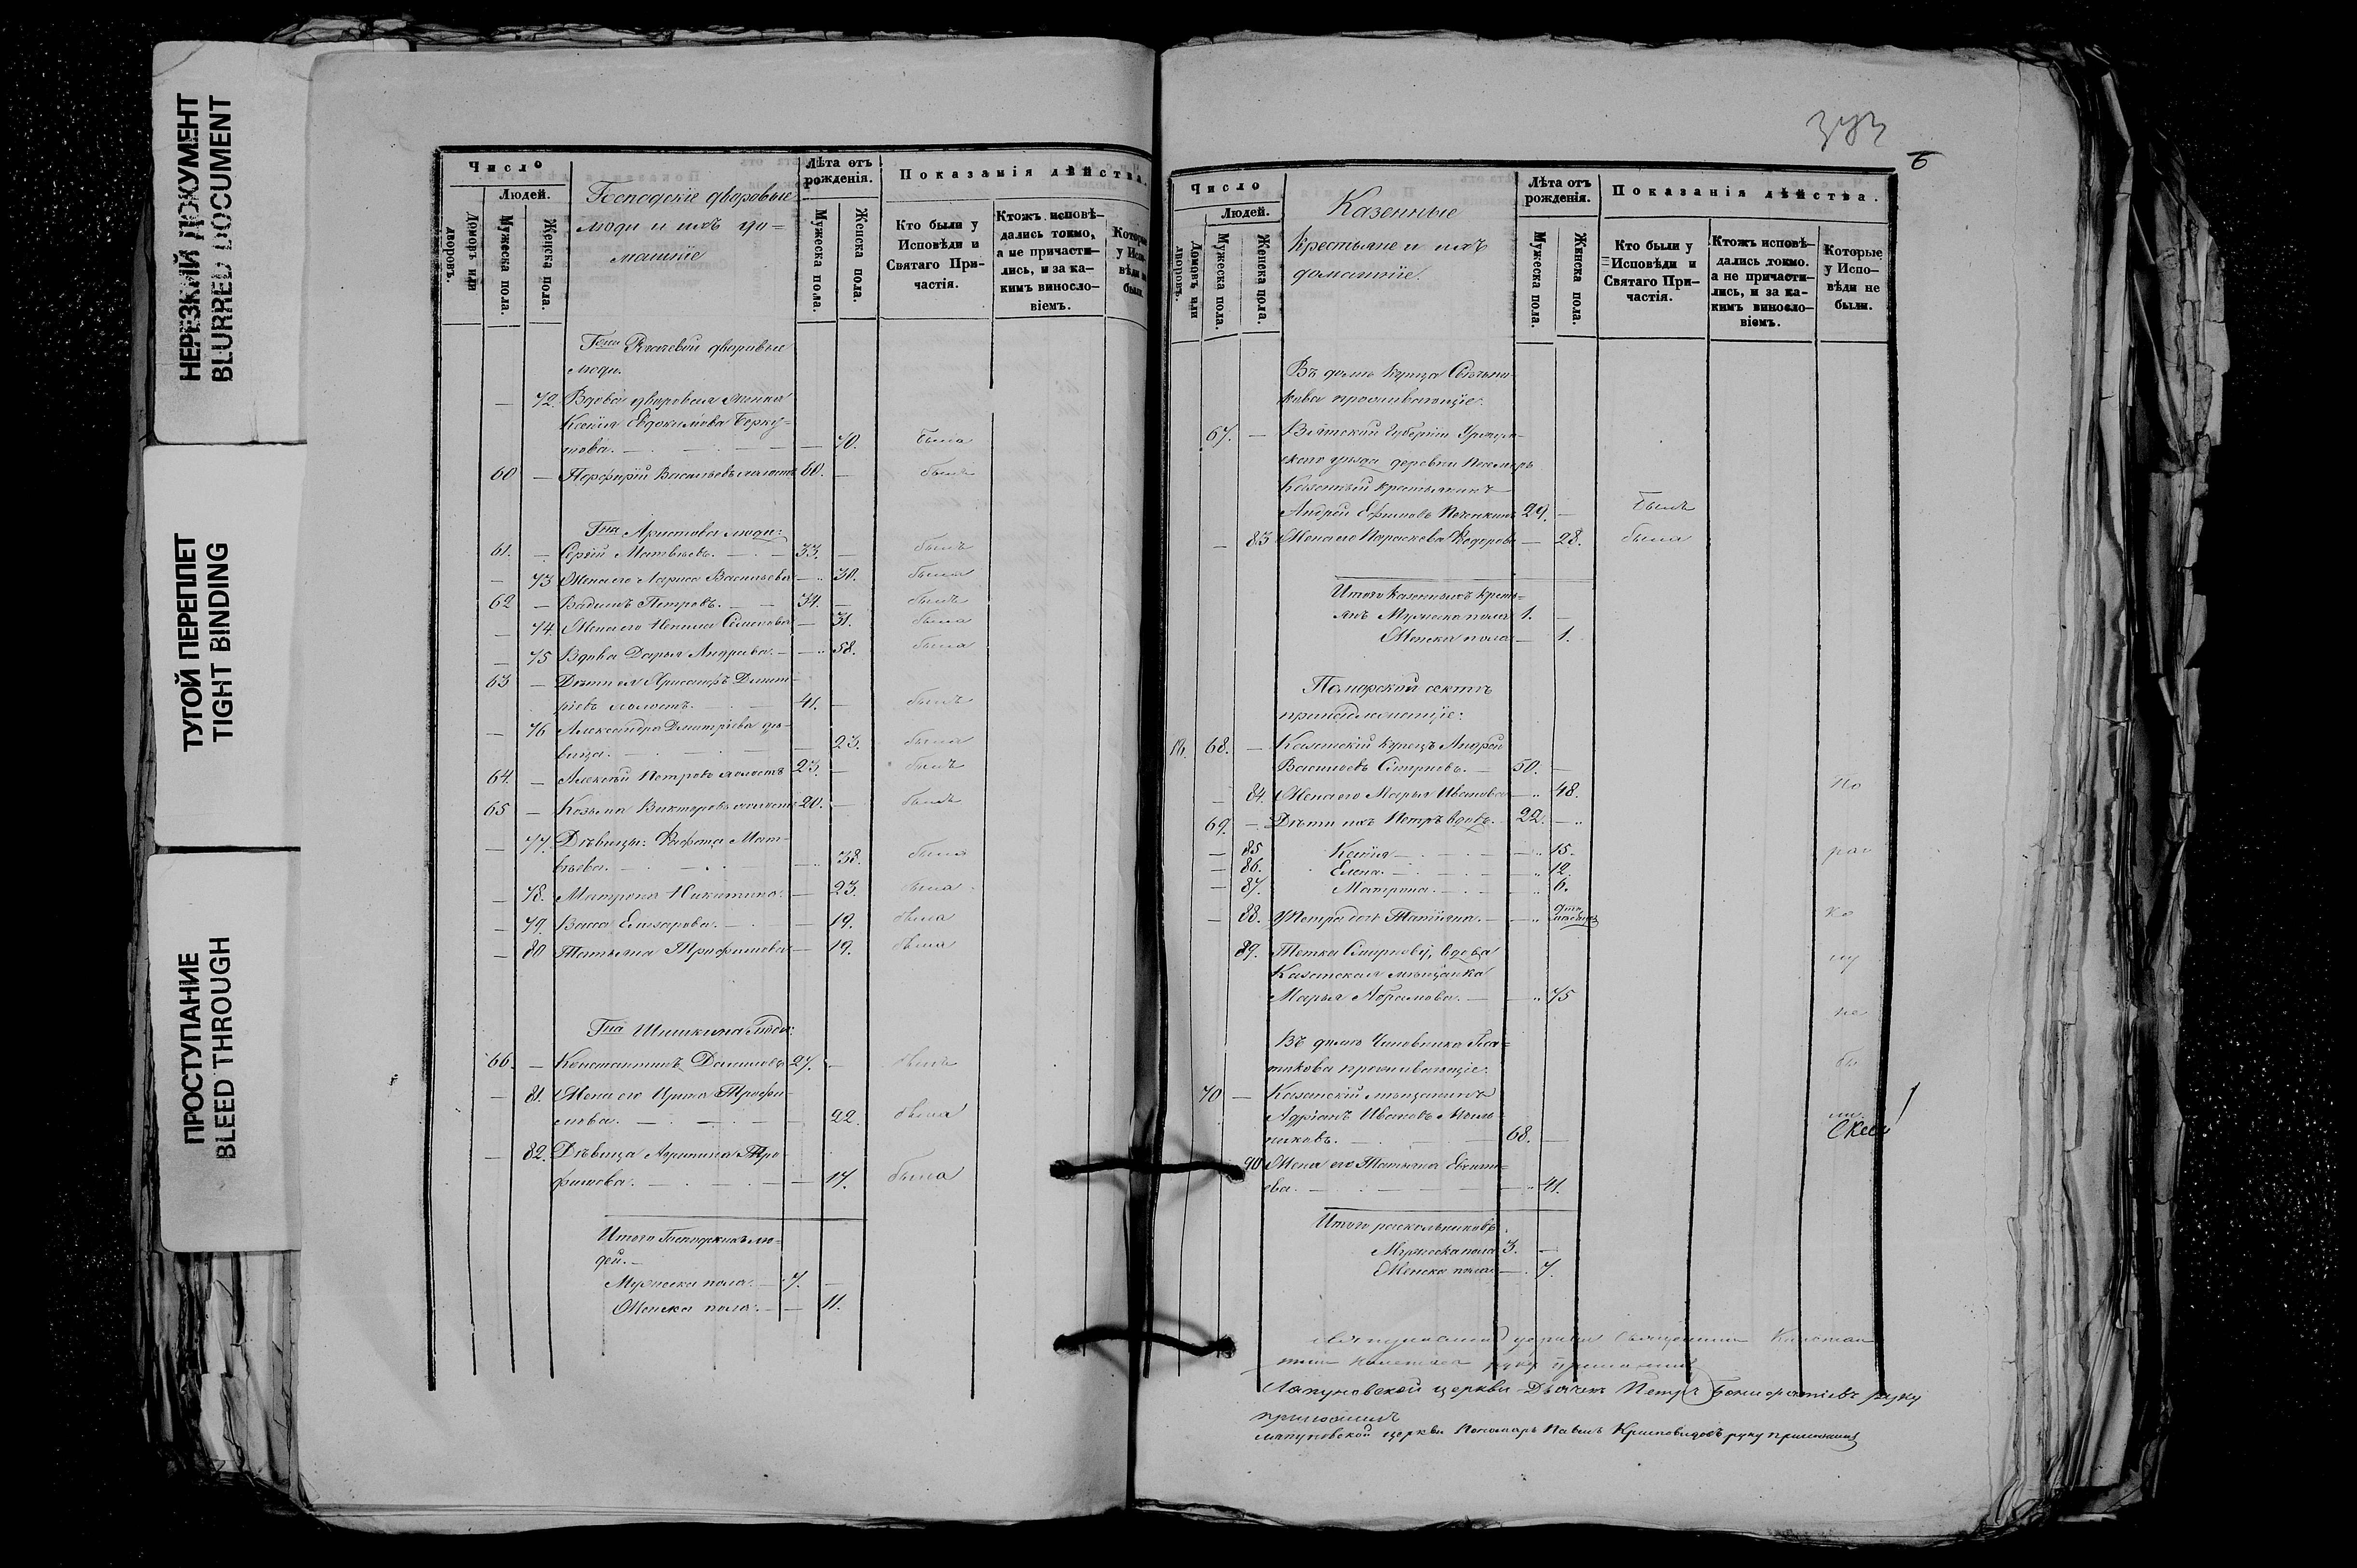 НЕРЕЗКИЙ ДОКУМЕНТ
BLURRED DOCUMENT
ТУГОЙ ПЕРЕПЛЕТ
TIGHT BINDING
ПРОСТУПАНИЕ
BLEED THROUGH
Число
Людей.
Домовъ или дворовъ.
Мужеска пола.
Женска пола.
Господскіе дворовые
люди и ихъ до=
машніе
Лѣта отъ рожденія.
Мужеска пола.
Женска пола.
Показанія дѣйства.
Кто были у Исповѣди и Святаго При-
частія.
Ктожъ исповѣ-
дались токмо,
а не причасти-
лись, и за ка-
кимъ виносло-
віемъ.
дворовые
люди.
— 72. Вдова дворовая женка
Ксенія Евдокимова Берку-
това. — 70. была
60 — Порфирій Васильевъ холостъ 60. — былъ
Гна Аристова люди:
61. — Сергій Матвѣевъ. 33. — былъ
— 73 Жена его Лариса Васильева — 30. была
62 — Вадимъ Петровъ. 34. — былъ
— 74. Жена его Семенова — 31. была
— 75 Вдова Дарья Андреева. — 58. была
63 — Дѣти ея Дмит-
ріевъ холостъ. 41. — былъ
— 76 Александра Дмитріева дѣ-
вица. — 23. была
64. — Алексѣй Петровъ холостъ 23. — былъ
65 — Козьма Викторовъ холостъ 20. — былъ
— 77. Дѣвицы: Мат-
вѣева. — 38. была
— 78. Матрона Никитина. — 23. была
— 79. Васса Елизарова. — 19. была
— 80 Татьяна Трофимова — 19. была
Гна Шишкина люди:
66. — Константинъ Даниловъ 27. — былъ
— 81. Жена его Ирина Трофи-
мова. — 22. была
— 82. Дѣвица Акулина Тро-
фимова. — 17. была
Итого Господскихъ лю-
дей. —
Мужеска пола. — 7. —
Женска пола. — 11.
373
6
Число
Людей.
Домовъ или дворовъ.
Мужеска пола.
Женска пола.
Казенные
крестьяне и ихъ
домашніе.
Лѣта отъ рожденія.
Мужеска пола.
Женска пола.
Показанія дѣйства.
Кто были у Исповѣди и Святаго При-
частія.
Ктожъ исповѣ-
дались токмо.
а не причасти-
лись, и за ка-
кимъ виносло-
віемъ.
Которые у Испо-
вѣди не были.
Въ домѣ купца
проживающіе.
67. — Вятской Губерніи
скаго уѣзда деревни
Казенный крестьянинъ
Андрей Ефимовъ 29. — былъ
— 83 Жена его Параскева Ѳедорова — 28. была
Итого казенныхъ кресть-
янъ Мужеска пола 1. —
Женска пола — 1.
Поморской секты
принадлежащіе:
18. 68. — Казанскій купецъ Андрей
Васильевъ Смирновъ. — 50. —
— 84. Жена его Марья Иванова — 48.
По
69. — Дѣти ихъ Петръ вдовъ. — 22. —
— 85 Ксенія — 15.
рас
— 86. Елена. — 12.
— 87. Матрона. — 6.
— 88. У Петра дочь Татіяна. —
ко
89. Тетка Смирнову, вдова
Казанская мѣщанка
Марья Абрамова. — 75
лу
не
Въ домѣ Чиновника
проживающіе:
бы
70 — Казанскій мѣщанинъ
Адріанъ Ивановъ
никовъ. — 68. —
ли.
90 Жена его Татьяна
ева. — 41.
Итого раскольниковъ
Мужеска пола 3. —
Женска пола — 7.
церкви Священникъ Констан
тинъ руку приложилъ
Ляпуновской церкви Дьячекъ Петръ Бонифатіевъ руку
приложилъ
Ляпуновской церкви Пономарь Павелъ Крисновидовъ руку приложилъ